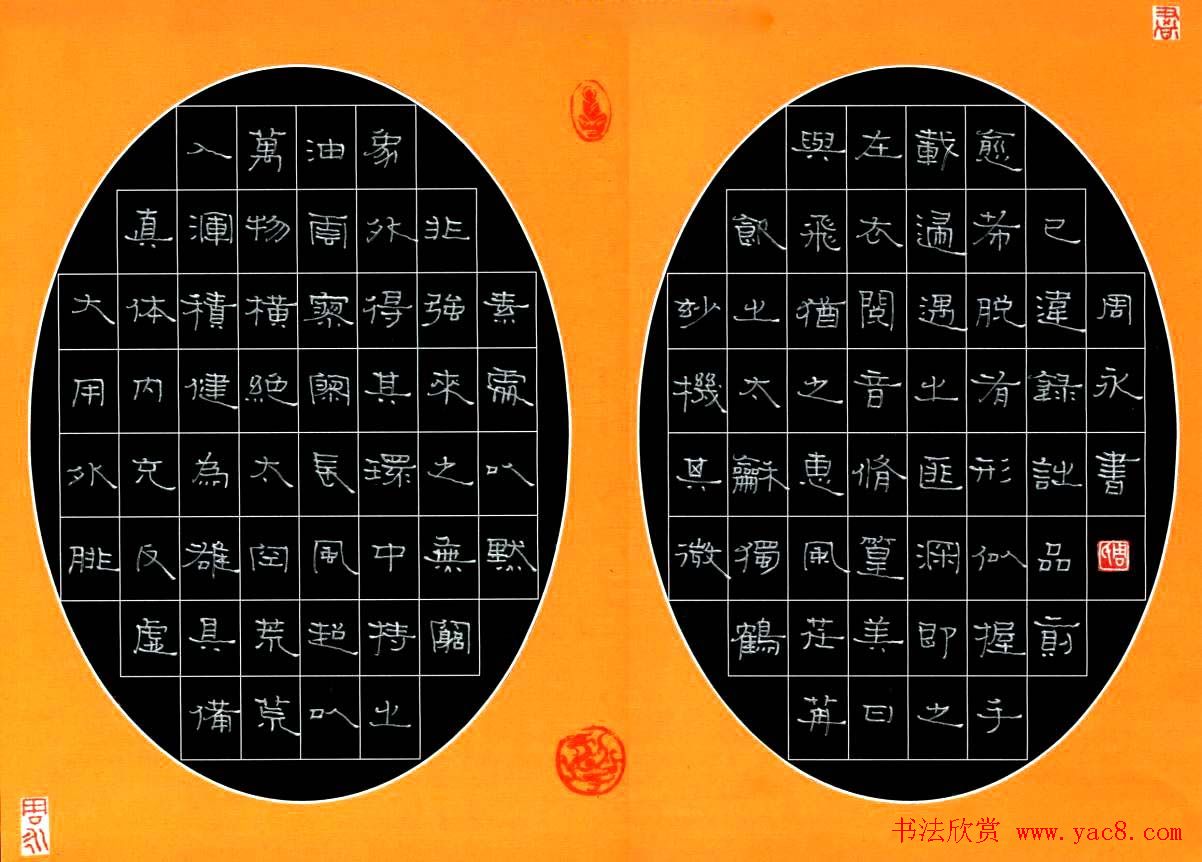 大用外腓
真体内充反虛
入渾積健為雄具備
萬物橫絕太空荒荒
油雲寥寥長風超以
象外得其環中持之
非強來之無窮
素處以默
妙機其微
飲之太龢獨鶴
與飛猶之惠風荏苒
在衣閱音脩篁美曰
載歸遇之匪深即之
愈希脫有形似握手
已違錄詩品前
周永書
书法欣赏 www.yac8.com